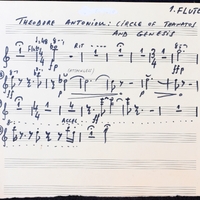 1. FLUTE
THEODORE ANTONIOU: CIRCLE OF THANATOS
AND GENESIS
Flute
RIT
ff
ACCEL